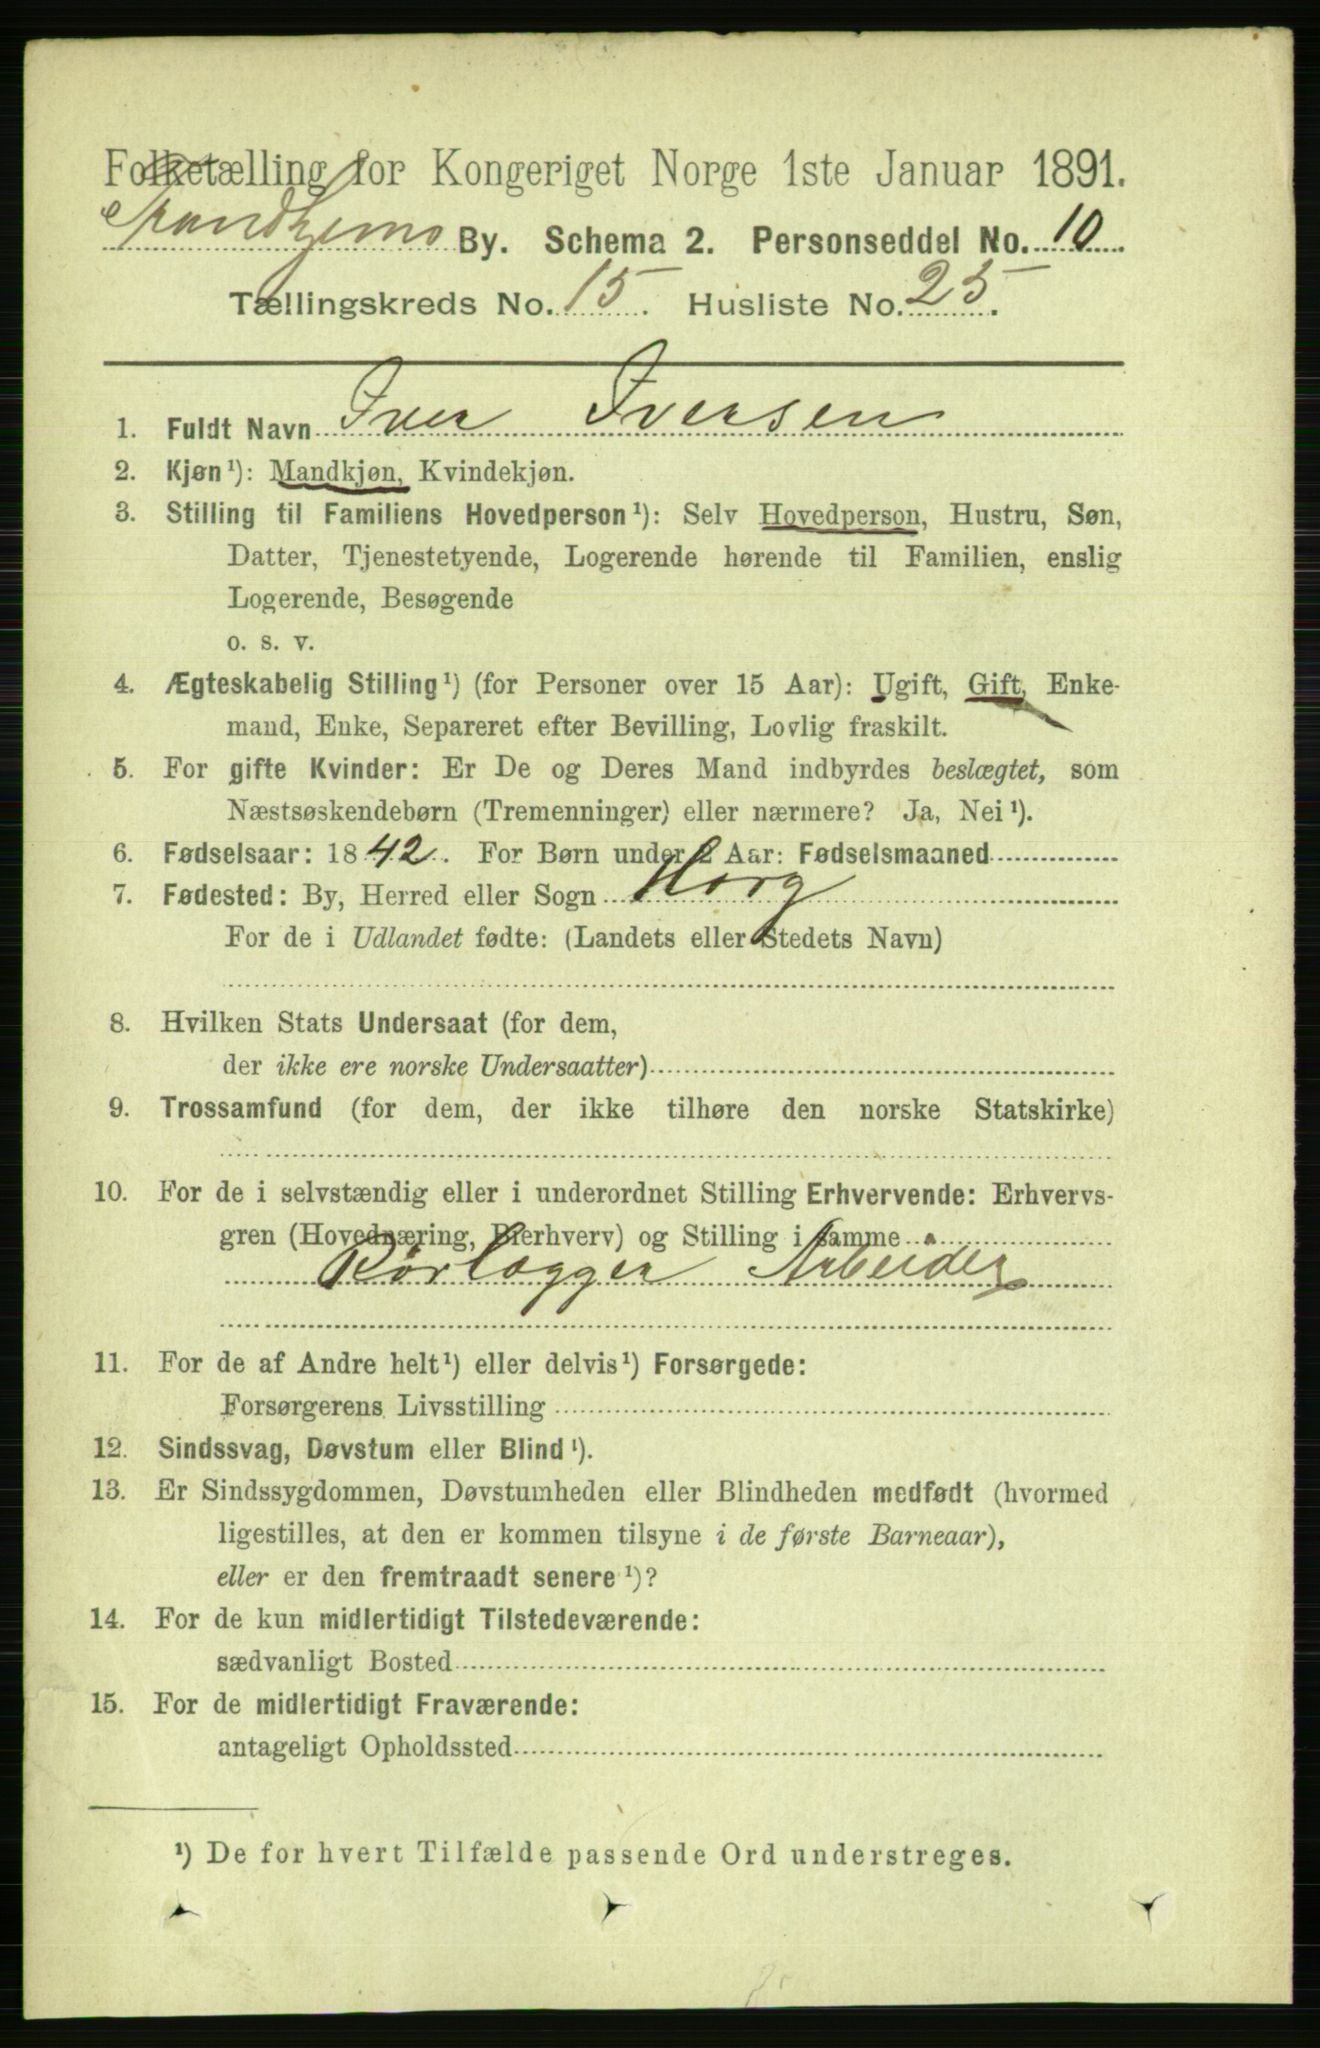 Folketælling for Kongeriget Norge 1ste Januar 1891.
Trondhjems By. Schema 2. Personseddel No. 10
Tællingskreds No. 15. Husliste No. 25.
1. Fuldt Navn Iver Iversen
2. Kjøn¹): Mandkjøn, Kvindekjøn.
3. Stilling til Familiens Hovedperson¹): Selv Hovedperson, Hustru, Søn,
Datter, Tjenestetyende, Logerende hørende til Familien, enslig
Logerende, Besøgende
o. s. v.
4. Ægteskabelig Stilling¹) (for Personer over 15 Aar): Ugift, Gift, Enke-
mand, Enke, Separeret efter Bevilling, Lovlig fraskilt.
5. For gifte Kvinder: Er De og Deres Mand indbyrdes beslægtet, som
Næstsøskendebørn (Tremenninger) eller nærmere? Ja, Nei¹).
6. Fødselsaar: 1842. For Børn under 2 Aar: Fødselsmaaned
7. Fødested: By, Herred eller Sogn Horg
For de i Udlandet fødte: (Landets eller Stedets Navn)
8. Hvilken Stats Undersaat (for dem,
der ikke ere norske Undersaatter)
9. Trossamfund (for dem, der ikke tilhøre den norske Statskirke)
10. For de i selvstændig eller i underordnet Stilling Erhvervende: Erhvervs-
gren (Hovednæring, Bierhverv) og Stilling i samme
Rørlægger Arbeider
11. For de af Andre helt¹) eller delvis¹) Forsørgede:
Forsørgerens Livsstilling
12. Sindssvag, Døvstum eller Blind¹).
13. Er Sindssygdommen, Døvstumheden eller Blindheden medfødt (hvormed
ligestilles, at den er kommen tilsyne i de første Barneaar),
eller er den fremtraadt senere¹)?
14. For de kun midlertidigt Tilstedeværende:
sædvanligt Bosted
15. For de midlertidigt Fraværende:
antageligt Opholdssted
¹) De for hvert Tilfælde passende Ord understreges.